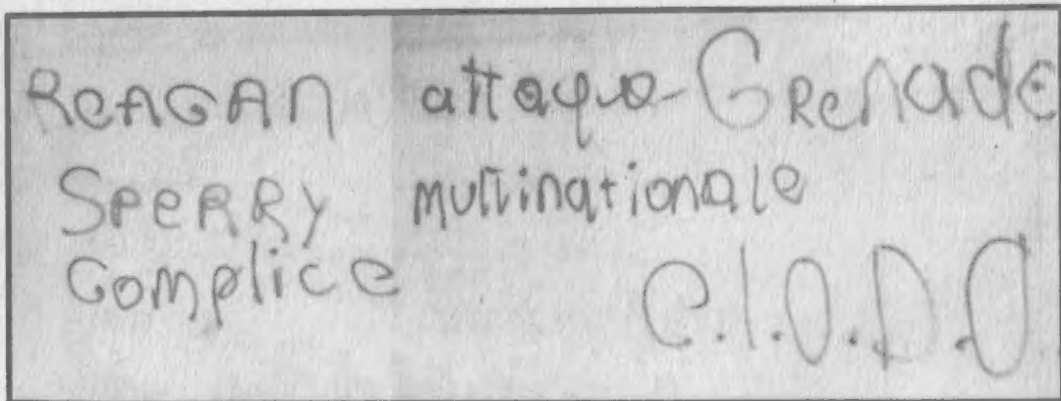 REAGAN attaque GRENADE
SPERRY multinationale
Complice C.I.O.D.O